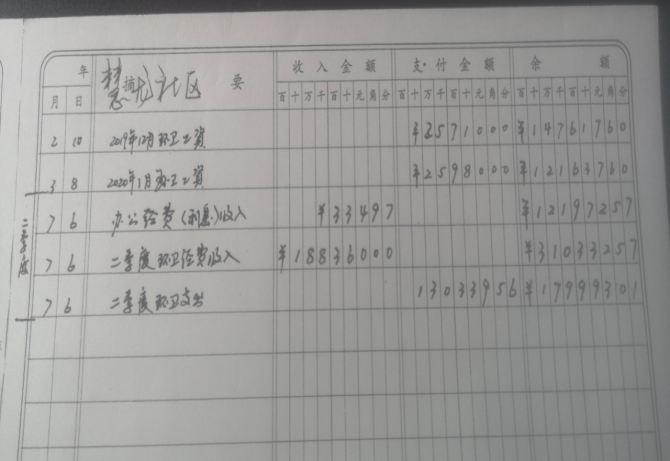 年 摘 要 收入金额 支付金额 余额
月 日 百十万千百十元角分 百十万千百十元角分 百十万千百十元角分
慧龙社区
2 10 2019年12月环卫工资 ¥2571000 ¥14761760
3 8 2020年1月环卫工资 ¥2598000 ¥12163760
二季度
7 6 办公经费(利息)收入 ¥33497 ¥12197257
7 6 二季度环卫经费收入 ¥18836000 ¥31033257
7 6 二季度环卫支出 13033956 ¥17999301